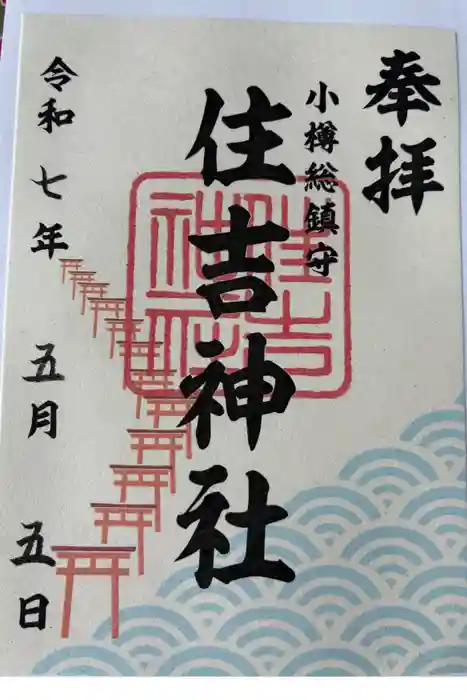 奉拝
小樽総鎮守
住吉神社
住吉神社
令和七年 五月 五日